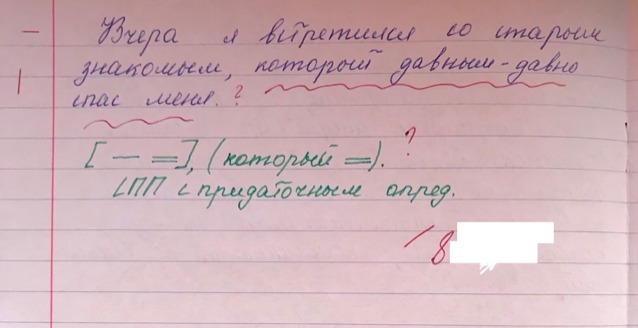 Вчера я встретился со старым
знакомым, который давным-давно
спас меня. ?
[ — = ], (который = ). ?
СПП с придаточным опред.
/ 8